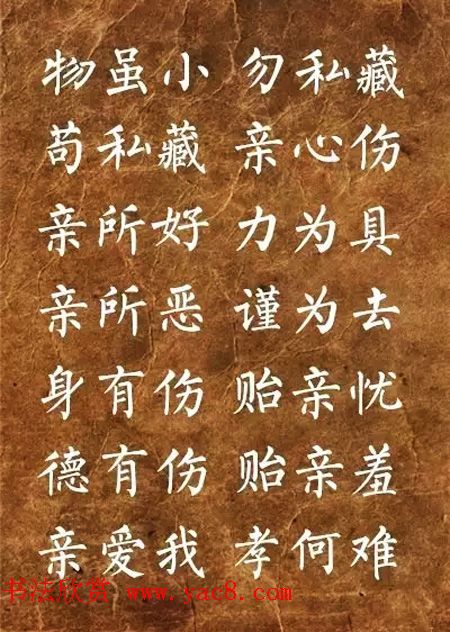 物虽小 勿私藏
苟私藏 亲心伤
亲所好 力为具
亲所恶 谨为去
身有伤 贻亲忧
德有伤 贻亲羞
亲爱我 孝何难
书法欣赏 www.yac8.com